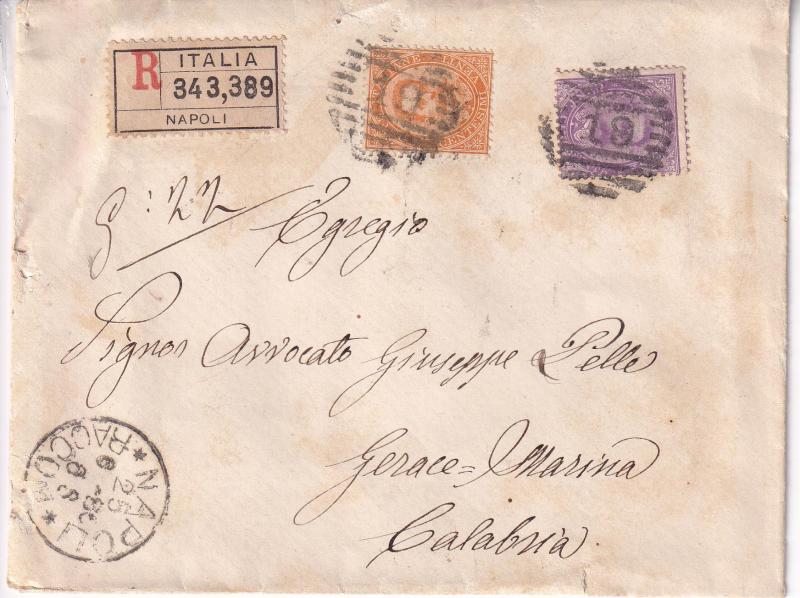 R ITALIA
343,389
NAPOLI
19
Egregio
Signor Avvocato Giuseppe Pelle
Gerace=Marina
Calabria
* NAPOLI *
RACCOM